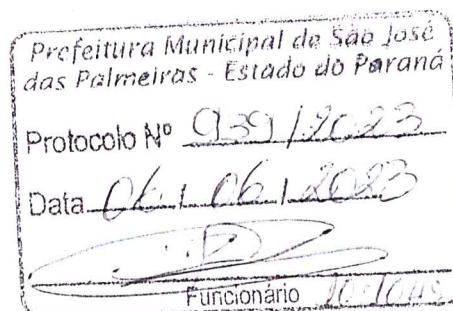 Prefeitura Municipal de São José
das Palmeiras - Estado do Paraná
Protocolo Nº 939 / 2023
Data 06 / 06 / 2023
Funcionário